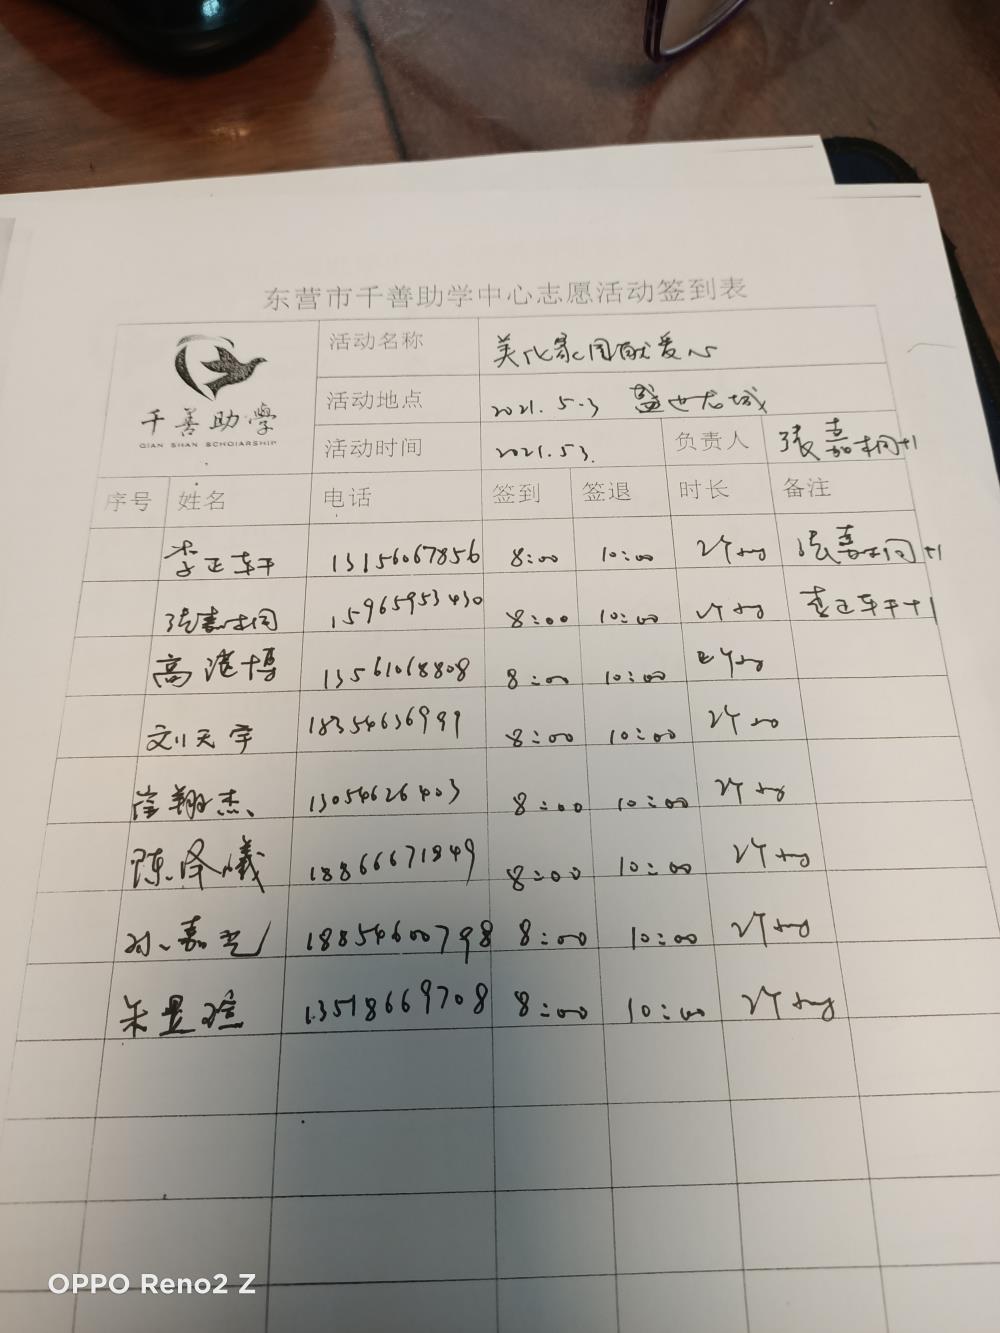 东营市千善助学中心志愿活动签到表
千善助學
QIAN SHAN SCHOIARSHIP
活动名称 美化家园献爱心
活动地点 2021.5.3 盛世龙城
活动时间 2021.5.3. 负责人 张嘉桐+1
序号 姓名 电话 签到 签退 时长 备注
李正轩 13156067856 8:00 10:00 2个小时 张嘉桐+1
张嘉桐 15965953430 8:00 10:00 2个小时 李正轩+1
高湛博 13561068808 8:00 10:00 2个小时
刘天宇 18354636991 8:00 10:00 2个小时
崔翔杰 13054626403 8:00 10:00 2个小时
陈泽曦 18866671849 8:00 10:00 2个小时
孙嘉艺 18854600798 8:00 10:00 2个小时
朱昱瑄 13518669708 8:00 10:00 2个小时
OPPO Reno2 Z